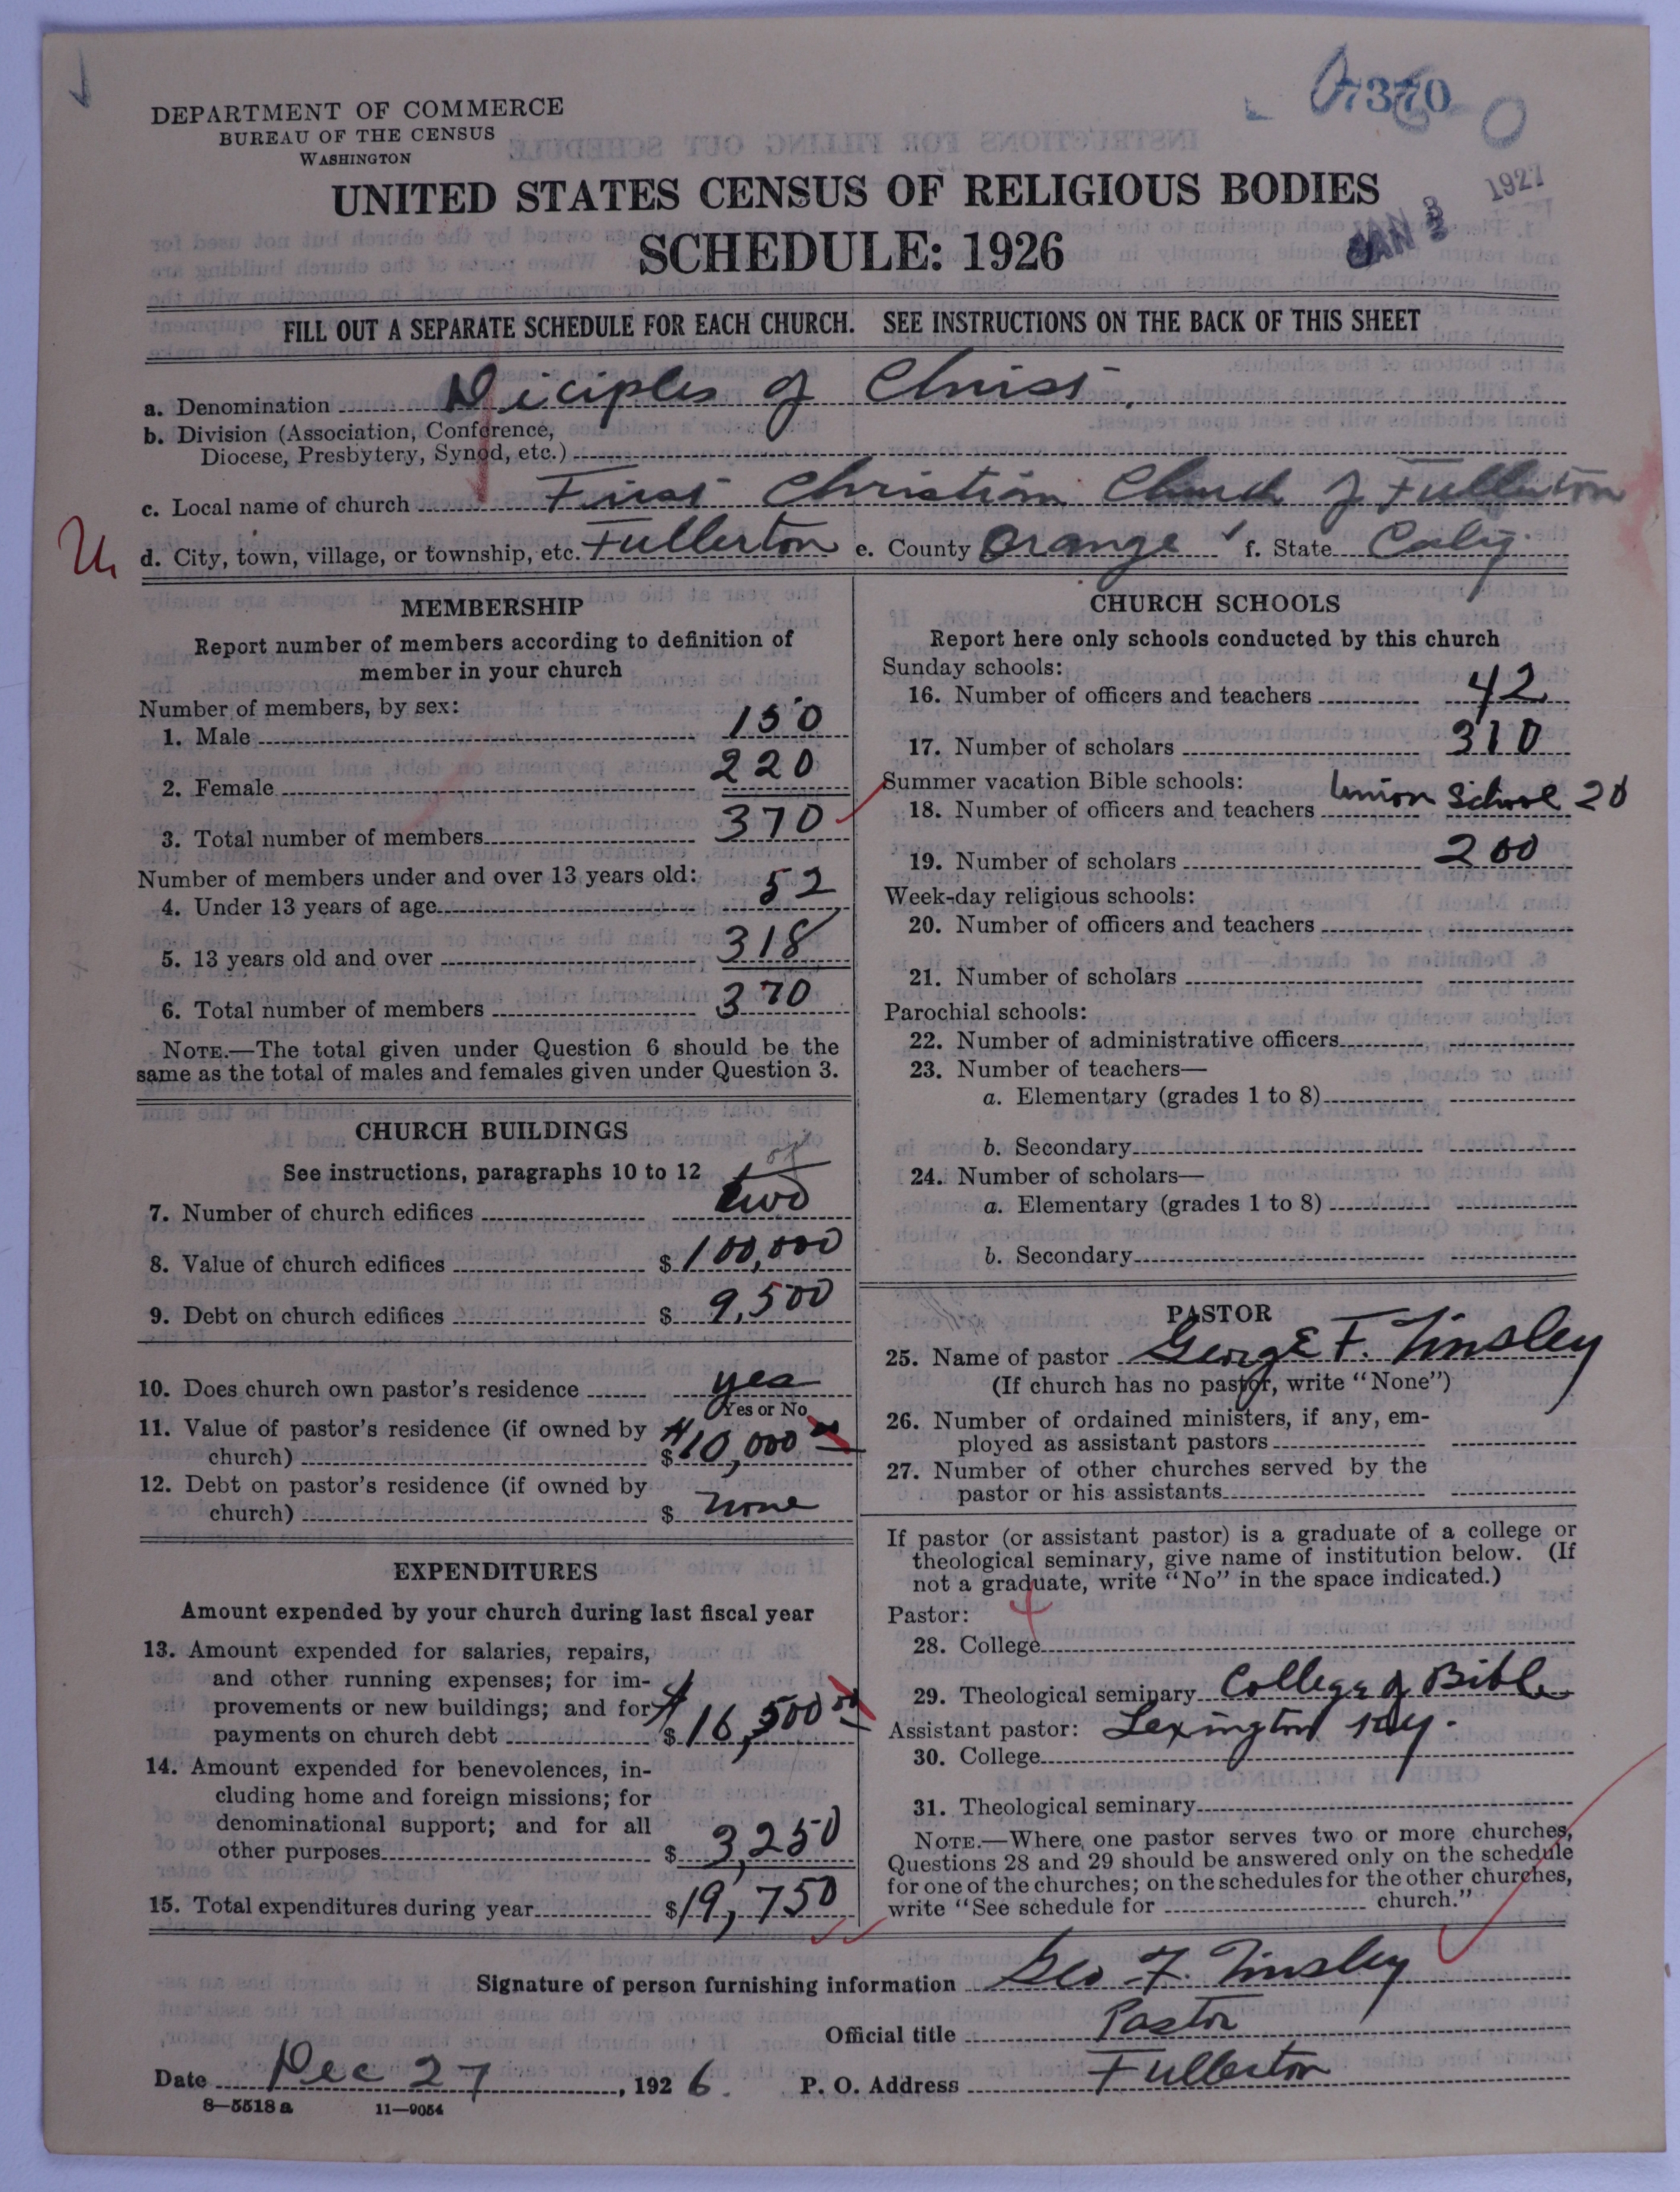 DEPARTMENT OF COMMERCE
BUREAU OF THE CENSUS
WASHINGTON
1927
JAN 3
UNITED STATES CENSUS OF RELIGIOUS BODIES
SCHEDULE: 1926
FILL OUT A SEPARATE SCHEDULE FOR EACH CHURCH. SEE INSTRUCTIONS ON THE BACK OF THIS SHEET
a. Denomination Diciples of Christ.
b. Division (Association, Conference,
Diocese, Presbytery, Synod, etc.)
c. Local name of church First Christian Church of Fullerton
d. City, town, village, or township, etc. Fullerton e. County Orange f. State Calif.
MEMBERSHIP
Report number of members according to definition of
member in your church
Number of members, by sex:
1. Male 150
2. Female 220
3. Total number of members 370
Number of members under and over 13 years old:
4. Under 13 years of age 52
5. 13 years old and over 318
6. Total number of members 370
NOTE.—The total given under Question 6 should be the
same as the total of males and females given under Question 3.
CHURCH BUILDINGS
See instructions, paragraphs 10 to 12
7. Number of church edifices two
8. Value of church edifices $ 100,000
9. Debt on church edifices $ 9,500
10. Does church own pastor's residence yes
Yes or No
11. Value of pastor's residence (if owned by
church) $ $10,000 00
12. Debt on pastor's residence (if owned by
church) $ none
EXPENDITURES
Amount expended by your church during last fiscal year
13. Amount expended for salaries, repairs,
and other running expenses; for im-
provements or new buildings; and for
payments on church debt $ $16,500 00
14. Amount expended for benevolences, in-
cluding home and foreign missions; for
denominational support; and for all
other purposes $ 3,250
15. Total expenditures during year $19,750
CHURCH SCHOOLS
Report here only schools conducted by this church
Sunday schools:
16. Number of officers and teachers 42
17. Number of scholars 310
Summer vacation Bible schools:
18. Number of officers and teachers Union School 20
19. Number of scholars 200
Week-day religious schools:
20. Number of officers and teachers
21. Number of scholars
Parochial schools:
22. Number of administrative officers
23. Number of teachers—
a. Elementary (grades 1 to 8)
b. Secondary
24. Number of scholars—
a. Elementary (grades 1 to 8)
b. Secondary
PASTOR
25. Name of pastor George F. Tinsley
(If church has no pastor, write "None")
26. Number of ordained ministers, if any, em-
ployed as assistant pastors
27. Number of other churches served by the
pastor or his assistants
If pastor (or assistant pastor) is a graduate of a college or
theological seminary, give name of institution below. (If
not a graduate, write "No" in the space indicated.)
Pastor:
28. College
29. Theological seminary College of Bible
Assistant pastor: Lexington Ky.
30. College
31. Theological seminary
NOTE.—Where one pastor serves two or more churches,
Questions 28 and 29 should be answered only on the schedule
for one of the churches; on the schedules for the other churches,
write "See schedule for church."
Signature of person furnishing information Geo F. Tinsley
Official title Pastor
Date Dec 27, 1926. P. O. Address Fullerton
8—5518a 11—9054